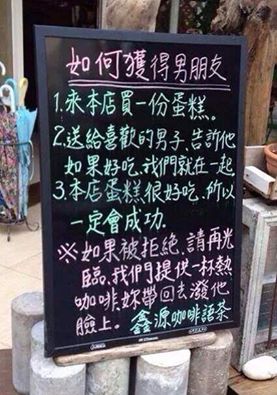 如何獲得男朋友
1.來本店買一份蛋糕。
2.送給喜歡的男子.告訴他
如果好吃.我們就在一起
3.本店蛋糕很好吃.所以
一定會成功.
※如果被拒絕.請再光
臨.我們提供一杯熱
咖啡妳帶回去潑他
臉上。鑫源咖啡語茶